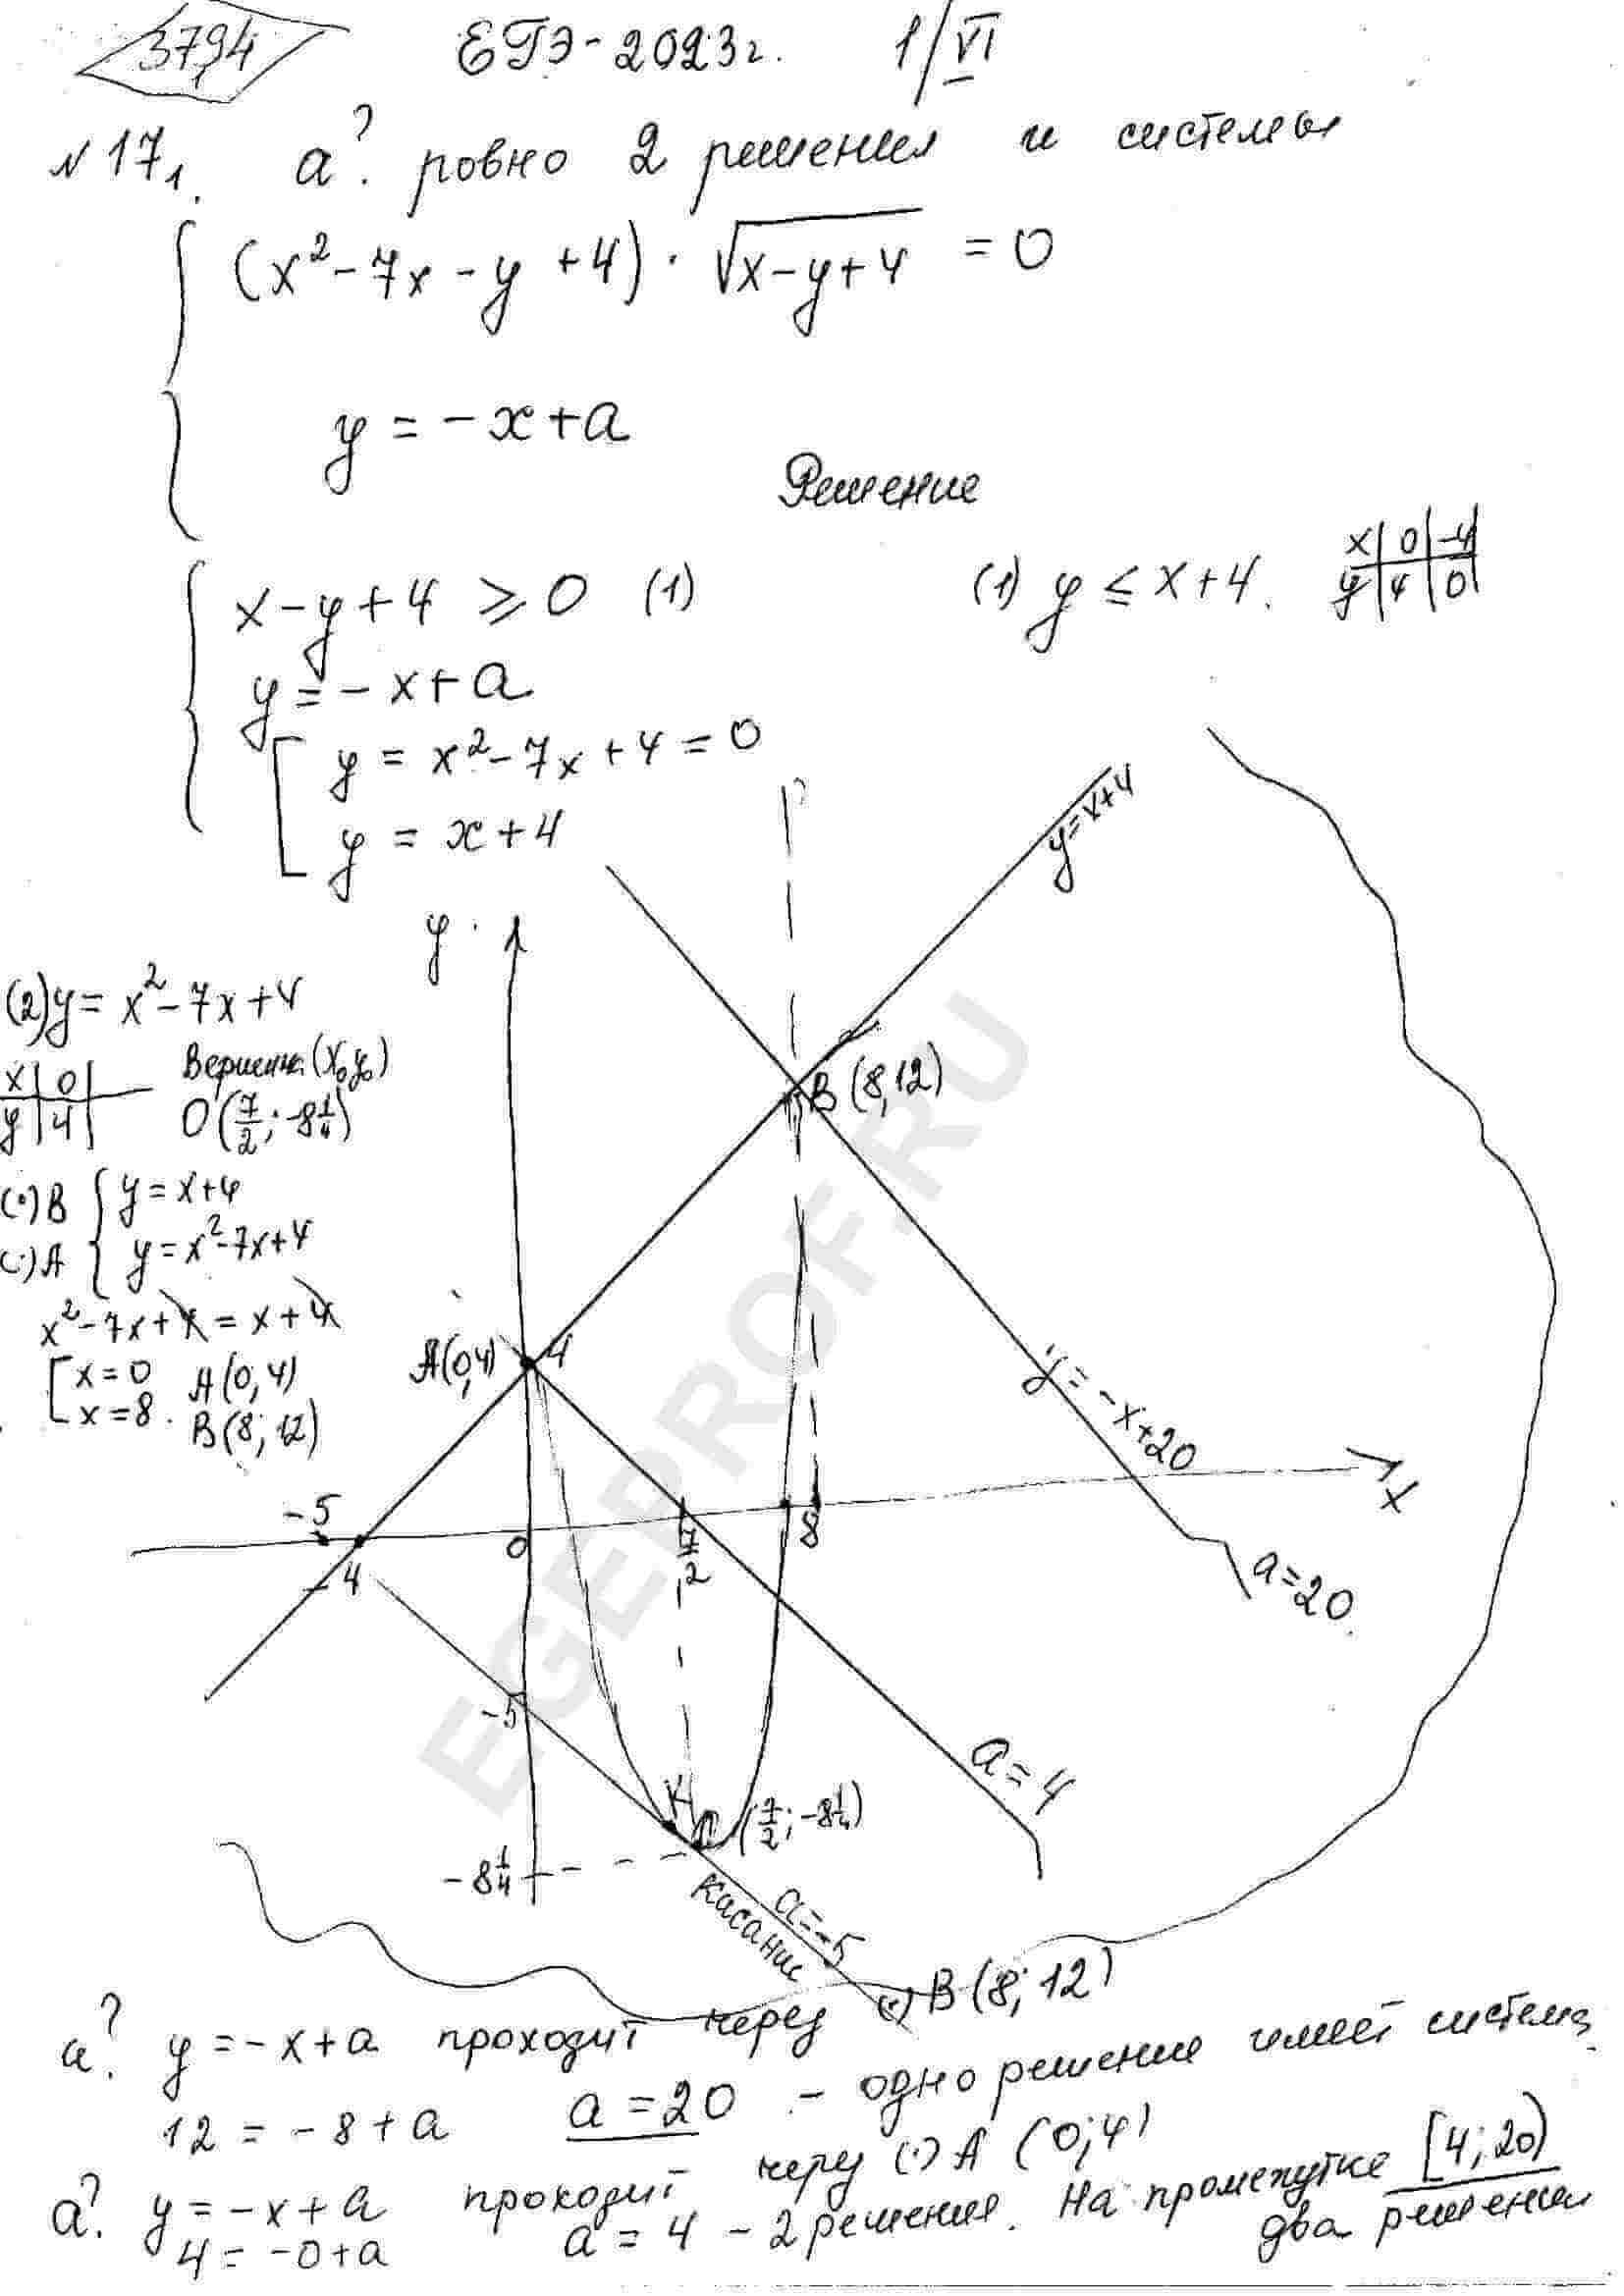 3794
ЕГЭ-2023г. 1/VI
N 17₁. a? ровно 2 решения и системы
(x²-7x-y+4)·√x-y+4 = 0
y = -x+a
Решение
x-y+4 ≥ 0 (1)
(1) y ≤ x+4.
x | 0 | -4
y | 4 | 0
y = -x+a
y = x²-7x+4=0
y = x+4
y = x+4
y
(2) y = x²-7x+4
x | 0
y | 4
Вершина (x₀y₀)
O(7/2; -8 1/4)
(·)B y = x+4
(·)A y = x²-7x+4
x²-7x+4 = x+4
x=0 A(0,4)
x=8. B(8; 12)
B(8,12)
A(0,4) 4
y = -x+20
x
-5
-4
0
7/2
8
a=20.
-5
a=4
(7/2; -8 1/4)
-8 1/4
касание
a=-5
a? y = -x+a проходит через (·) B(8; 12)
12 = -8+a a=20 - одно решение имеет система
a? y = -x+a проходит через (·) A (0;4)
4 = -0+a a=4 - 2 решения. На промежутке [4; 20)
два решения
EGEPROF.RU